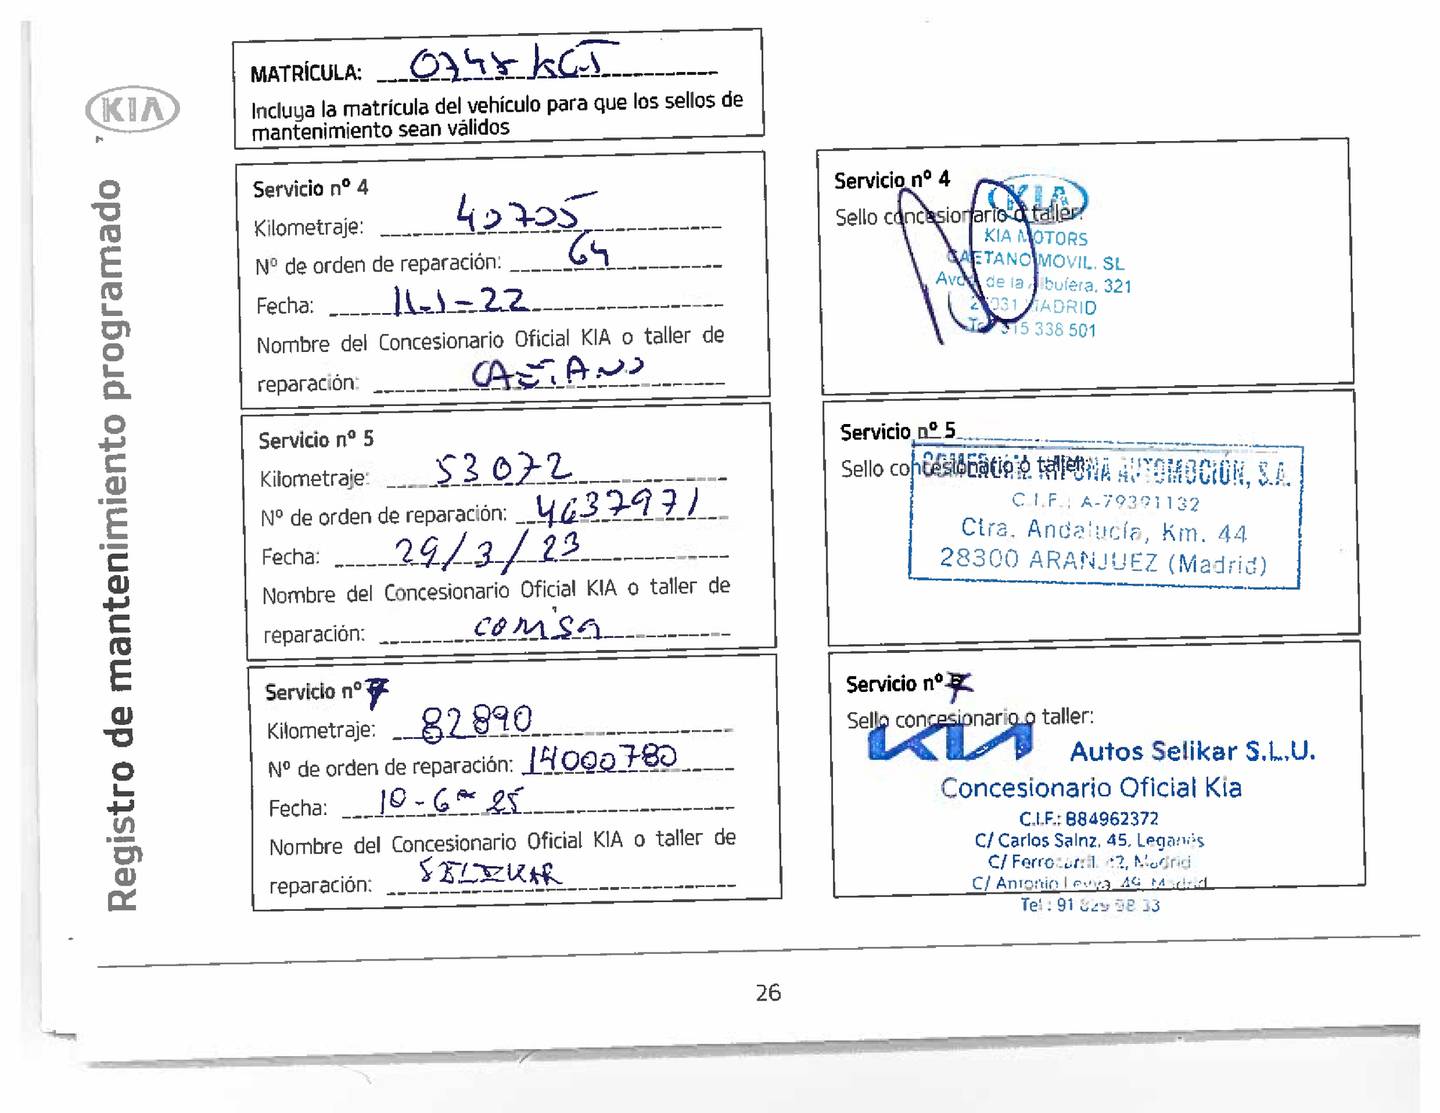 KIA
Registro de mantenimiento programado
MATRÍCULA: 0748 KGJ
Incluya la matrícula del vehículo para que los sellos de
mantenimiento sean válidos
Servicio nº 4
Kilometraje: 40705
Nº de orden de reparación: 64
Fecha: 11-1-22
Nombre del Concesionario Oficial KIA o taller de
reparación: CAETANO
Servicio nº 4
Sello concesionario o taller:
KIA
KIA MOTORS
CAETANO MOVIL. SL
Avda. de la Albufera, 321
28031 MADRID
Tel. 915 338 501
Servicio nº 5
Kilometraje: 53072
Nº de orden de reparación: 4637971
Fecha: 29/3/23
Nombre del Concesionario Oficial KIA o taller de
reparación: COMSA
Servicio nº 5
Sello concesionario o taller:
AUTOMOCIÓN, S.A.
C.I.F.: A-79391132
Ctra. Andalucía, Km. 44
28300 ARANJUEZ (Madrid)
Servicio nº 7
Kilometraje: 82890
Nº de orden de reparación: 14000780
Fecha: 10-6-25
Nombre del Concesionario Oficial KIA o taller de
reparación: SELIKAR
Servicio nº 7
Sello concesionario o taller:
KIA Autos Selikar S.L.U.
Concesionario Oficial Kia
C.I.F.: B84962372
C/ Carlos Sainz, 45, Leganés
C/ Ferrocarril, 42, Madrid
C/ Antonio Leyva, 49, Madrid
Tel.: 91 829 98 33
26